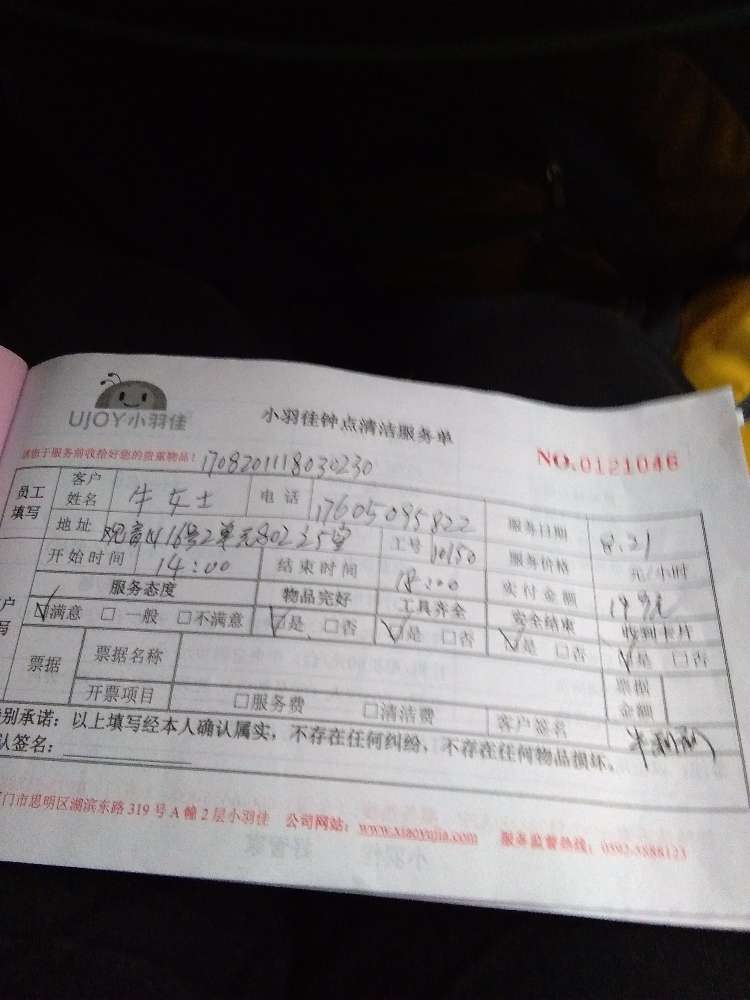 UJOY小羽佳
小羽佳钟点清洁服务单
请您于服务前收拾好您的贵重物品! 1708201118030230 NO.0121046
员工填写 客户姓名 牛女士 电话 17605095822 服务日期 8.21
地址 观音山16号2单元 工号 10150 服务价格 元/小时
开始时间 14:00 结束时间 18:00 实付金额
服务态度 物品完好 工具齐全 安全结束 收到卡片
☑满意 □一般 □不满意 ☑是 □否 ☑是 □否 ☑是 □否 ☑是 □否
票据 票据名称 票据金额
开票项目 □服务费 □清洁费 客户签名
别承诺：以上填写经本人确认属实，不存在任何纠纷，不存在任何物品损坏。
认签名：
门市思明区湖滨东路 319 号 A 幢 2 层小羽佳 公司网站：www.xiaoyujia.com 服务监督热线：0592-5888123